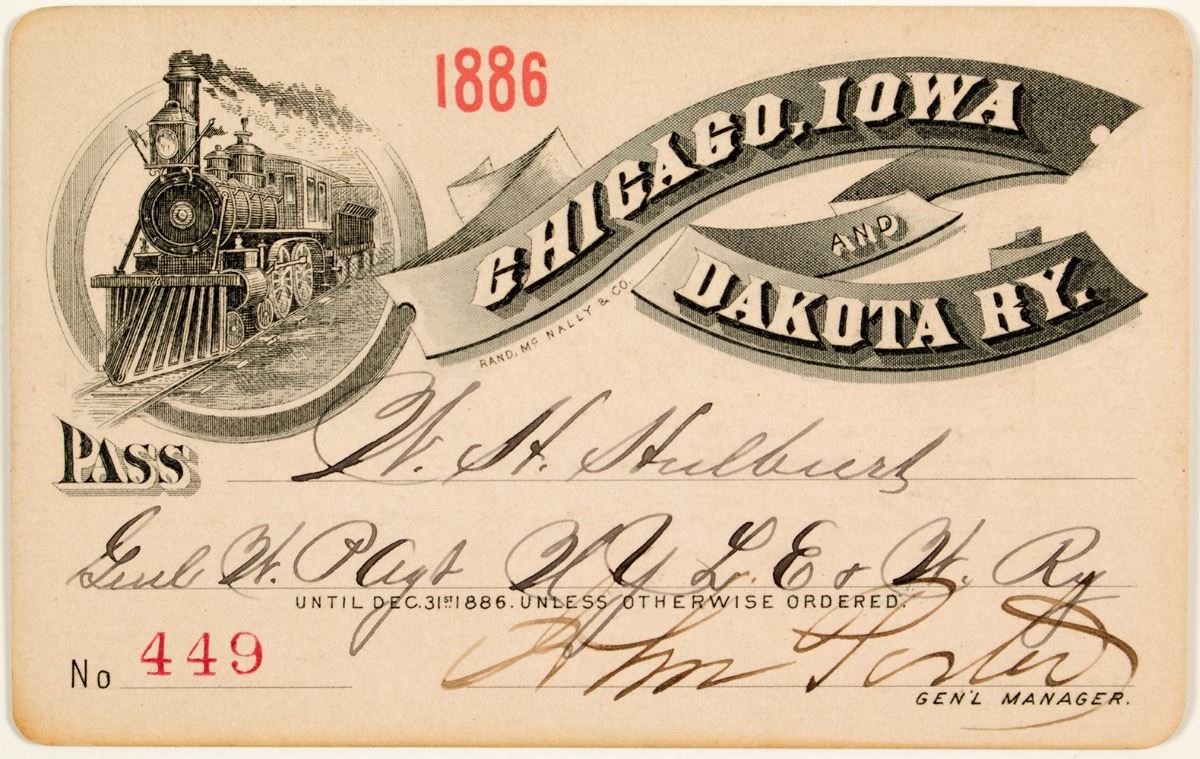 1886
CHICAGO, IOWA
AND
DAKOTA RY.
RAND, MC NALLY & CO.
PASS W. H. Hulburt
Genl W. P Agt N Y L. E & W. Ry
UNTIL DEC. 31ST 1886. UNLESS OTHERWISE ORDERED.
No 449
Porter
GEN'L MANAGER.